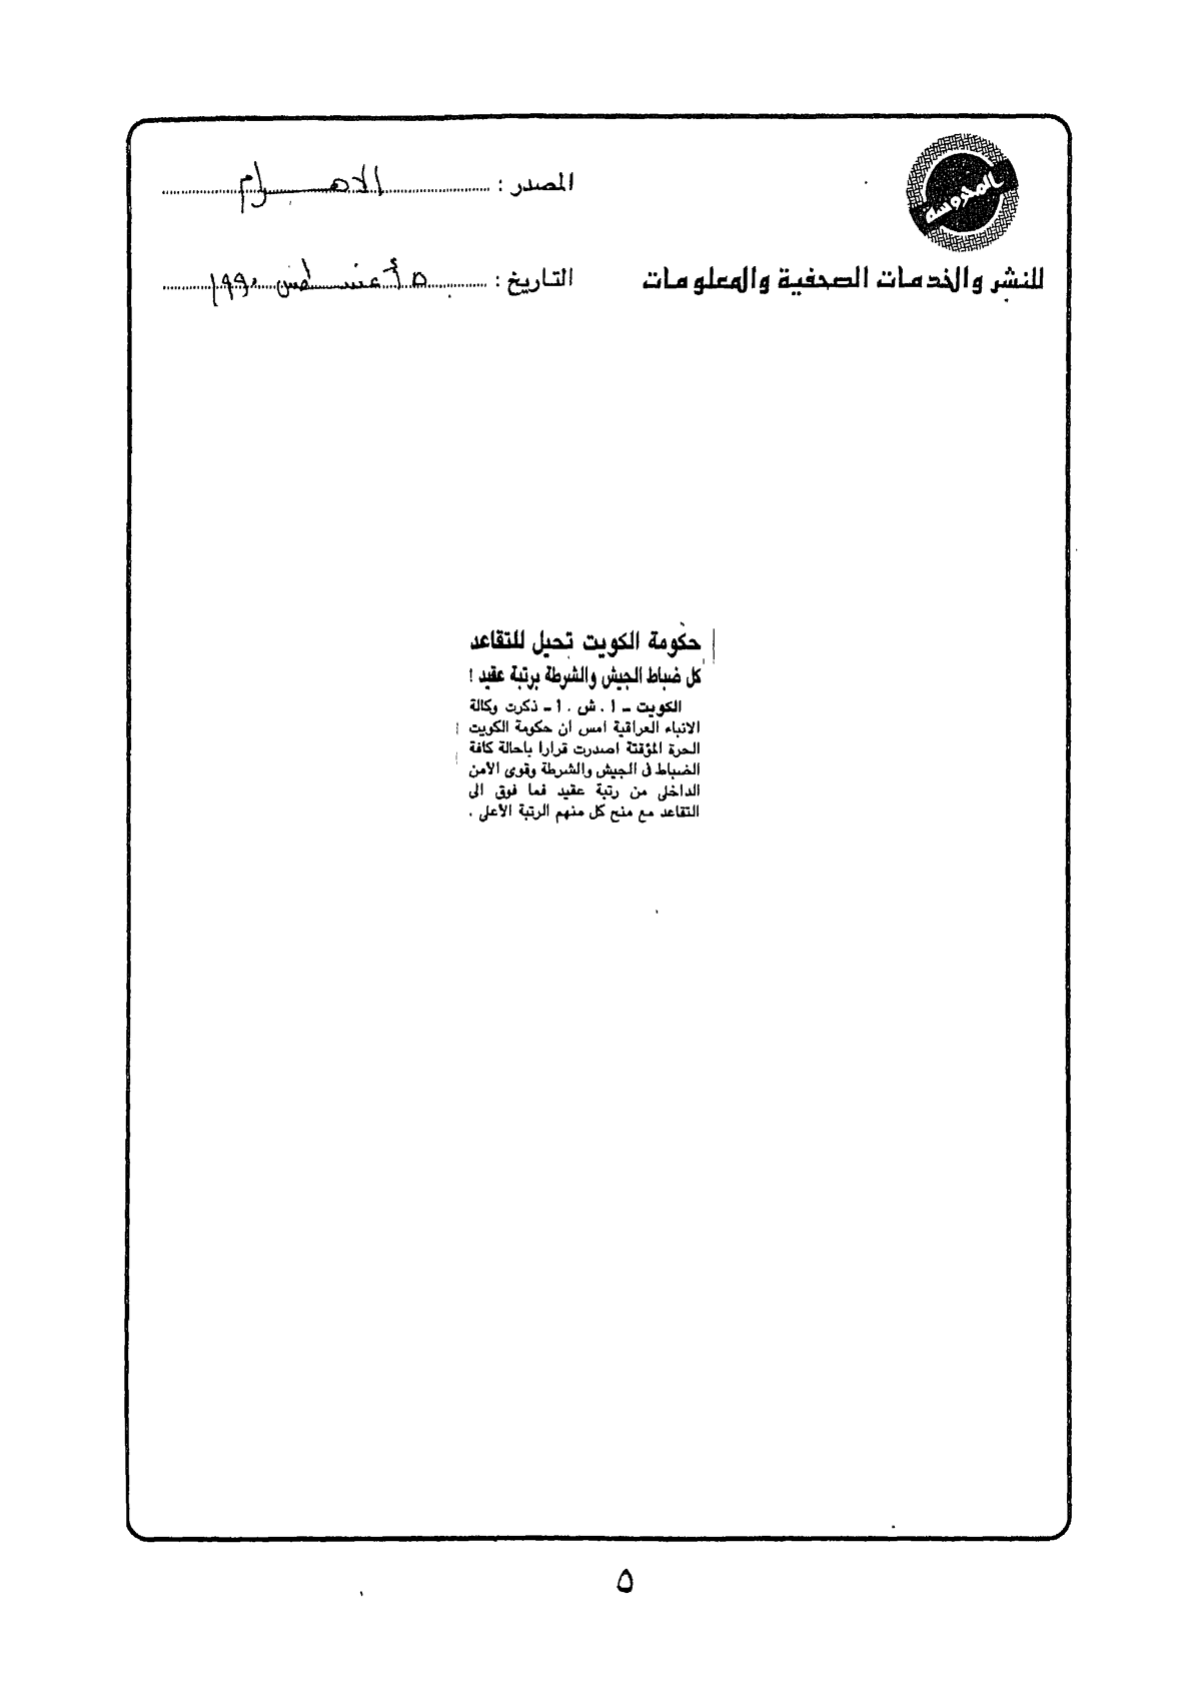 المحروسة
للنشر والخدمات الصحفية والمعلومات
المصدر : الاهرام
التاريخ : ٥ أغسطس ١٩٩٠
حكومة الكويت تحيل للتقاعد
كل ضباط الجيش والشرطة برتبة عقيد !
الكويت ـ ا . ش . ا ـ ذكرت وكالة
الانباء العراقية امس ان حكومة الكويت
الحرة المؤقتة اصدرت قرارا باحالة كافة
الضباط فى الجيش والشرطة وقوى الأمن
الداخلى من رتبة عقيد فما فوق الى
التقاعد مع منح كل منهم الرتبة الأعلى .
٥